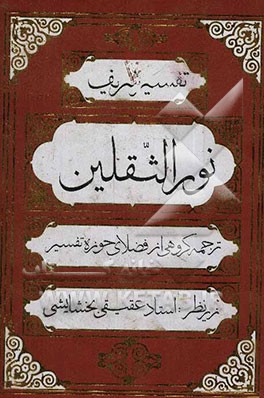 تفسیر شریف
نورالثّقلین
ترجمه گروهی از فضلای حوزه تفسیر
زیر نظر: استاد عقیقی بخشایشی